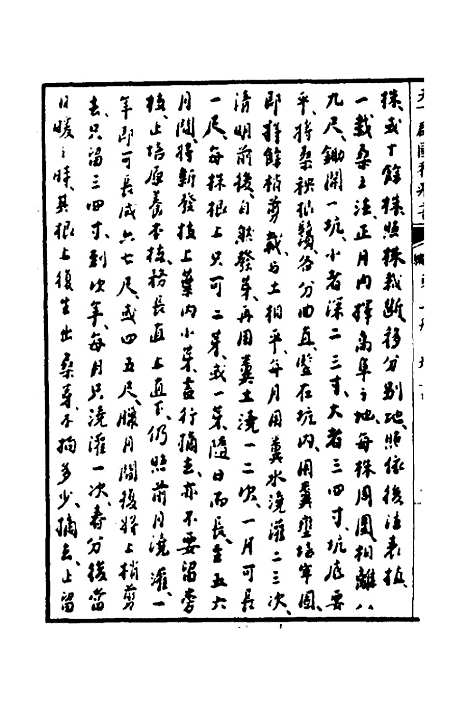 株或十餘株照株裁斷移分别地照依後法表植
一栽桑之法正月内擇高阜之地每株周圍相離八
九尺鋤開一坑小者深二三寸大者三四寸坑底要
平将桑秧根鬚各分曲直豎在坑内用糞壅培牢固
即择餘梢剪裁与土相平每月用糞水澆灌二三次
清明前後自然發芽再用糞土澆一二次一月可長
一尺每株根上只可二芽或一芽隨日而長至五六
月間将新發枝上葉内小芽盡行摘去亦不要留旁
枝止培原養本枝務長直上直下仍照前月澆灌一
年即可長成六七尺或四五尺臘月間後将上梢剪
去只留三四寸到次年每月只澆灌一次春分後當
日暖之時其根上復生出桑芽不拘多少摘去上留